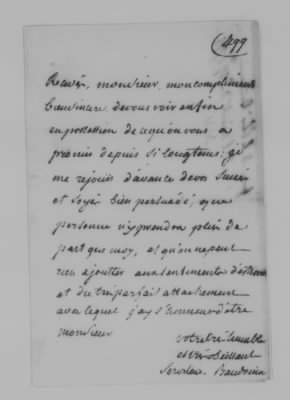 499
Recevés, monsieur, mon compliment
bien sincere de vous voir enfin
en possession de ce qu'on vous a
promis depuis si longtems; je
me rejouis d'avance de vos succes
et soyés bien persuadé, que
personne n'y prendra plus de
part que moy, et qu'on ne peut
rien ajoutter aux sentiments d'estime
et du tres parfait attachement
avec lequel j'ay l'honneur d'être
monsieur
votre tres humble
et tres obeissant
Serviteur. Baudouin